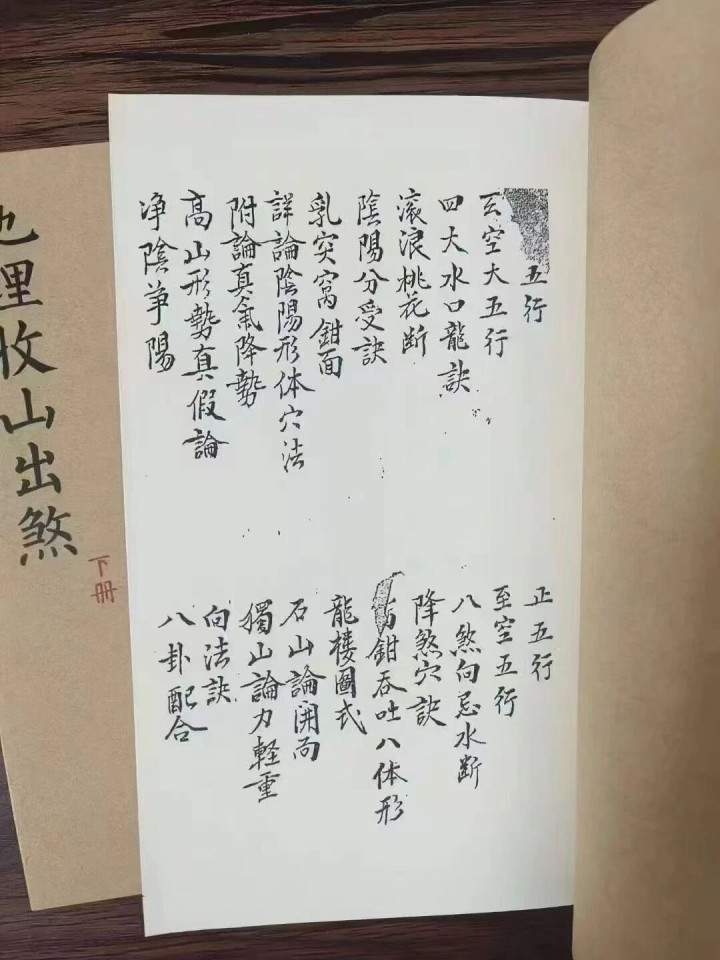 五行
玄空大五行
四大水口龍訣
滚浪桃花断
陰陽分受訣
乳突窝鉗面
詳論陰陽形体穴法
附論真氣降勢
高山形勢真假論
净陰争陽
正五行
至空五行
八煞向忌水断
降煞穴訣
鉗吞吐八体形
龍楼圖式
石山論開面
獨山論力軽重
向法訣
八卦配合
地理收山出煞
下册